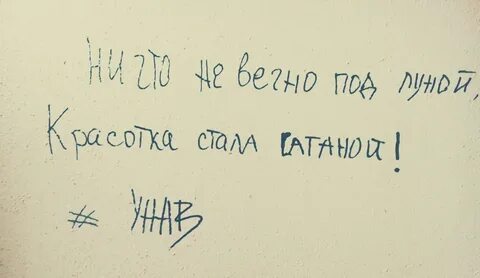 Ничто не вечно под луной,
Красотка стала сатаной!
# УНАВ